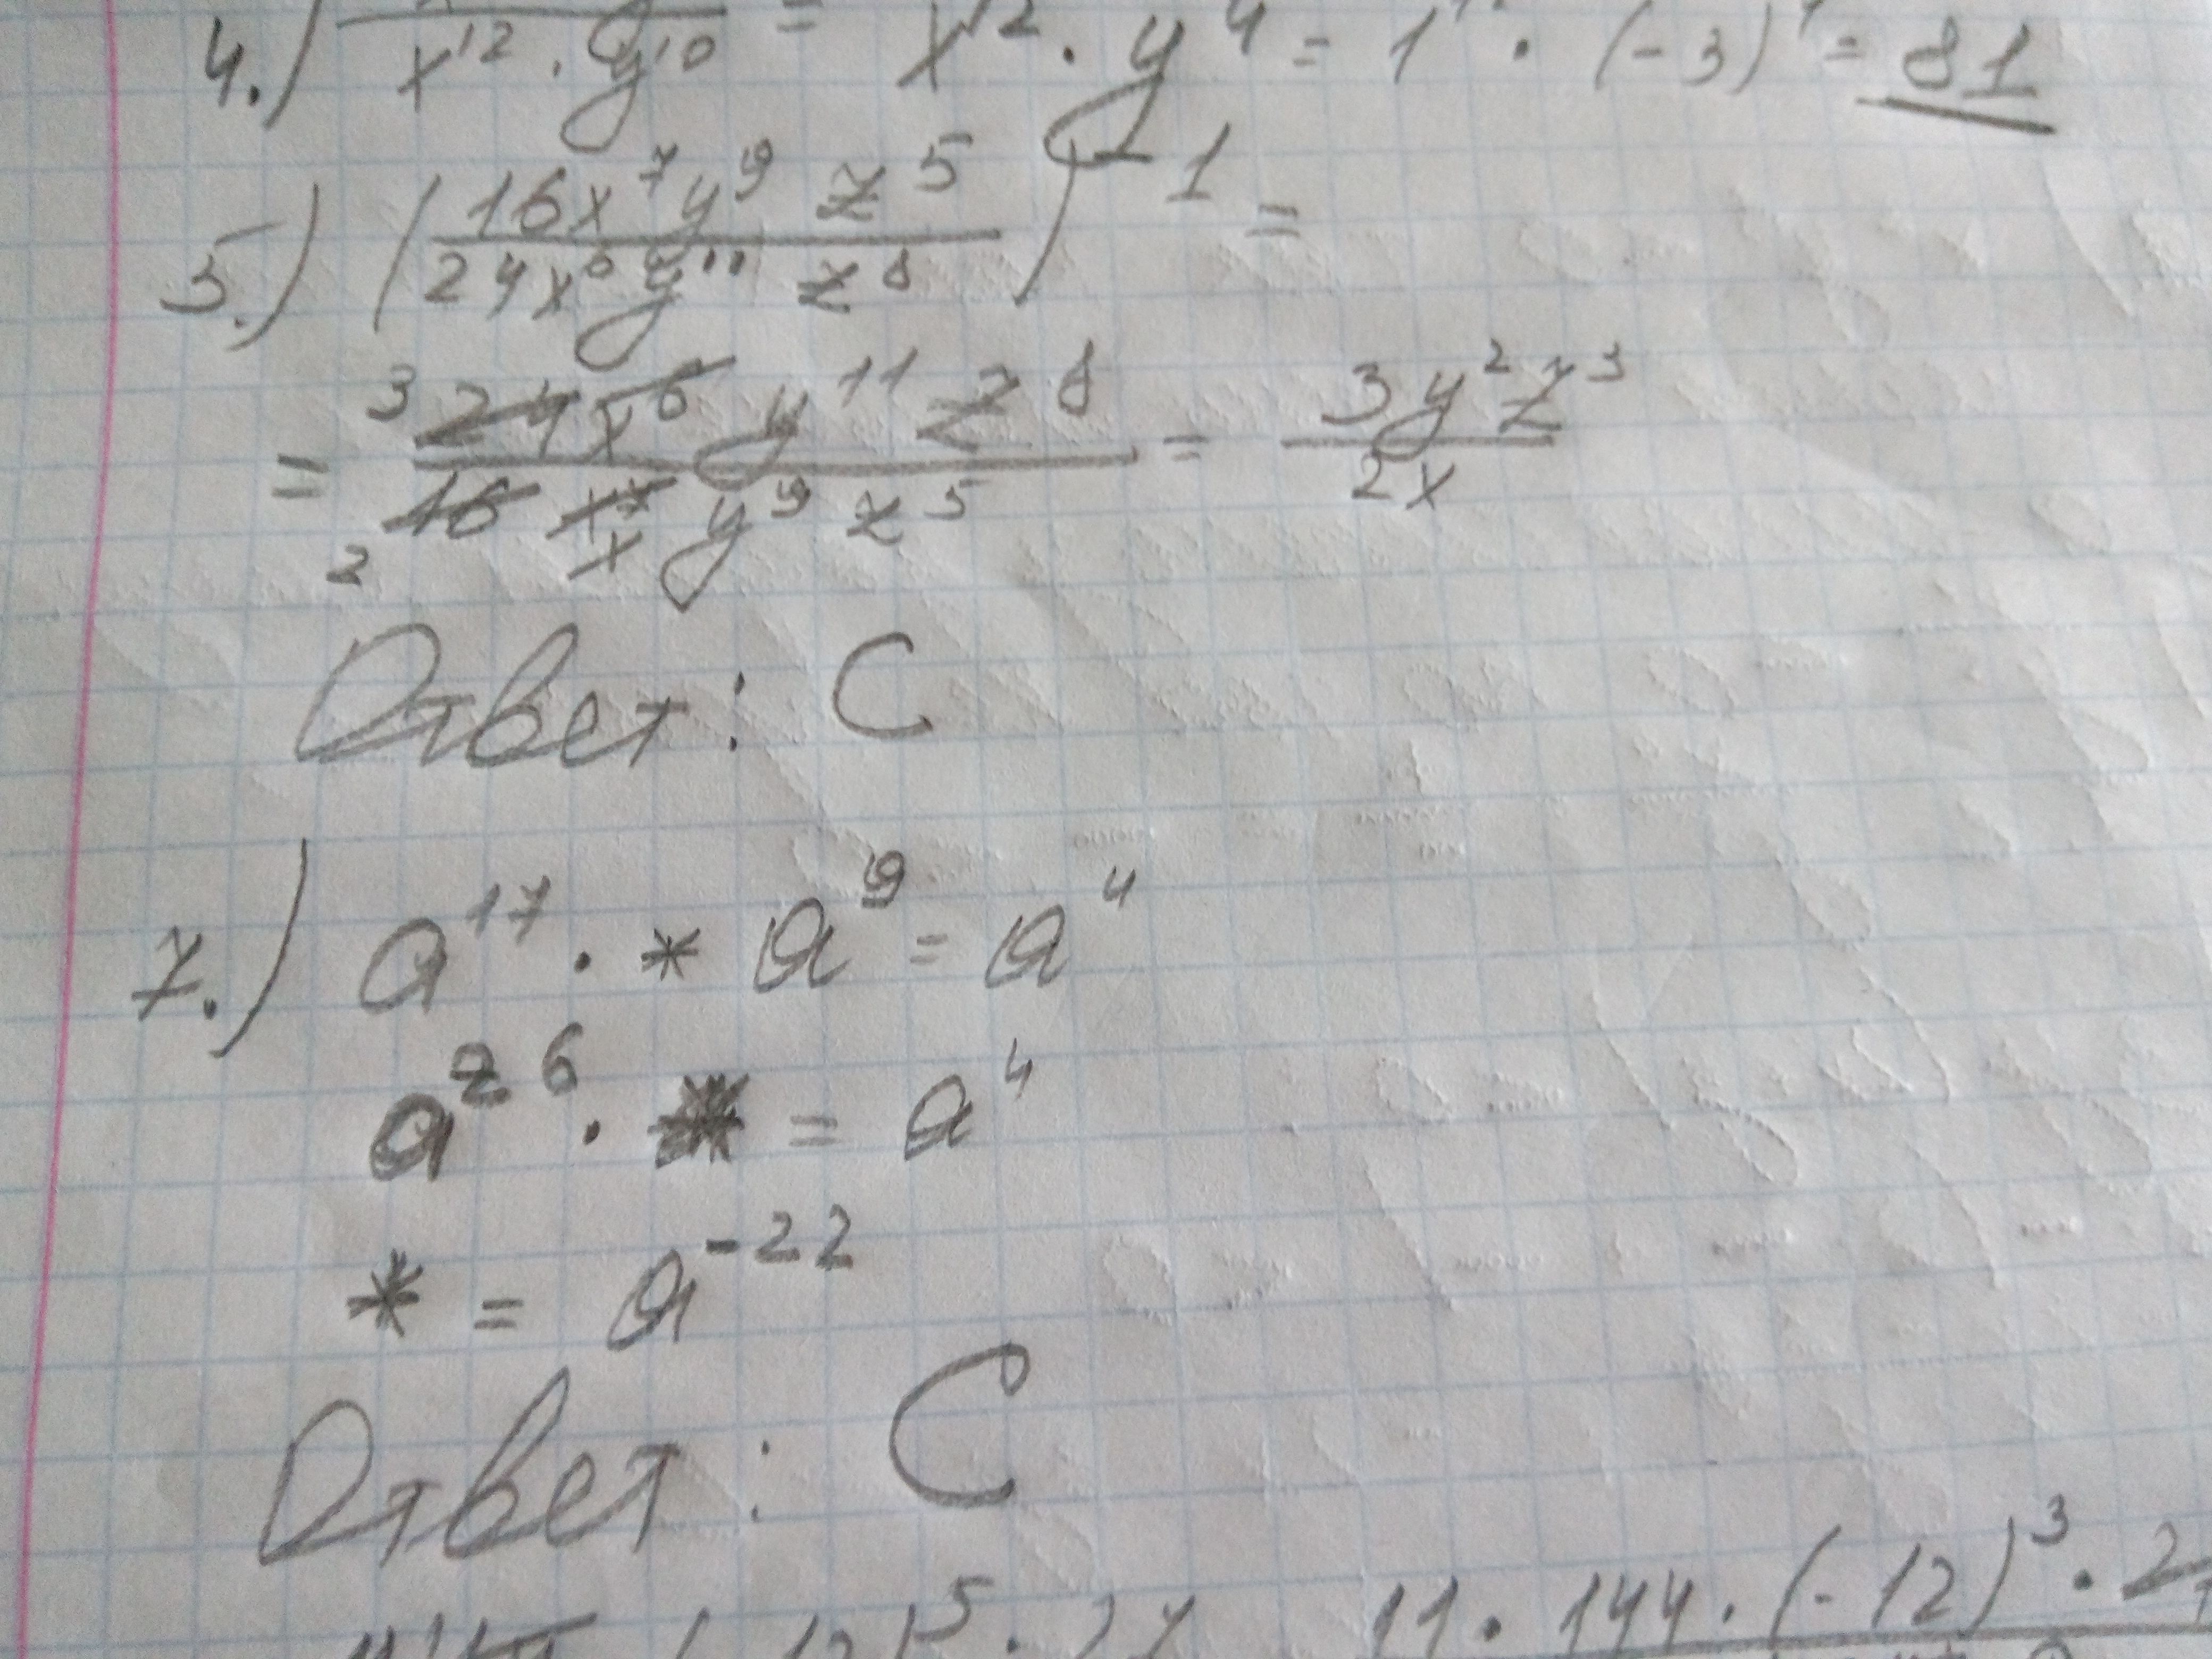 4.) x¹² · y¹⁰ = x¹² · y⁴ = 1¹² · (-3)⁴ = 81
5.) (16x⁷y⁹z⁵ / 24x⁶y¹¹z⁸)⁻¹ =
= 3 24x⁶y¹¹z⁸ / 2 16x⁷ x y⁹z⁵ = 3y²z³ / 2x
Ответ: C
7.) a¹⁷ · * a⁹ = a⁴
a²⁶ · * = a⁴
* = a⁻²²
Ответ: C
11 · 144 · (-12)³ ·